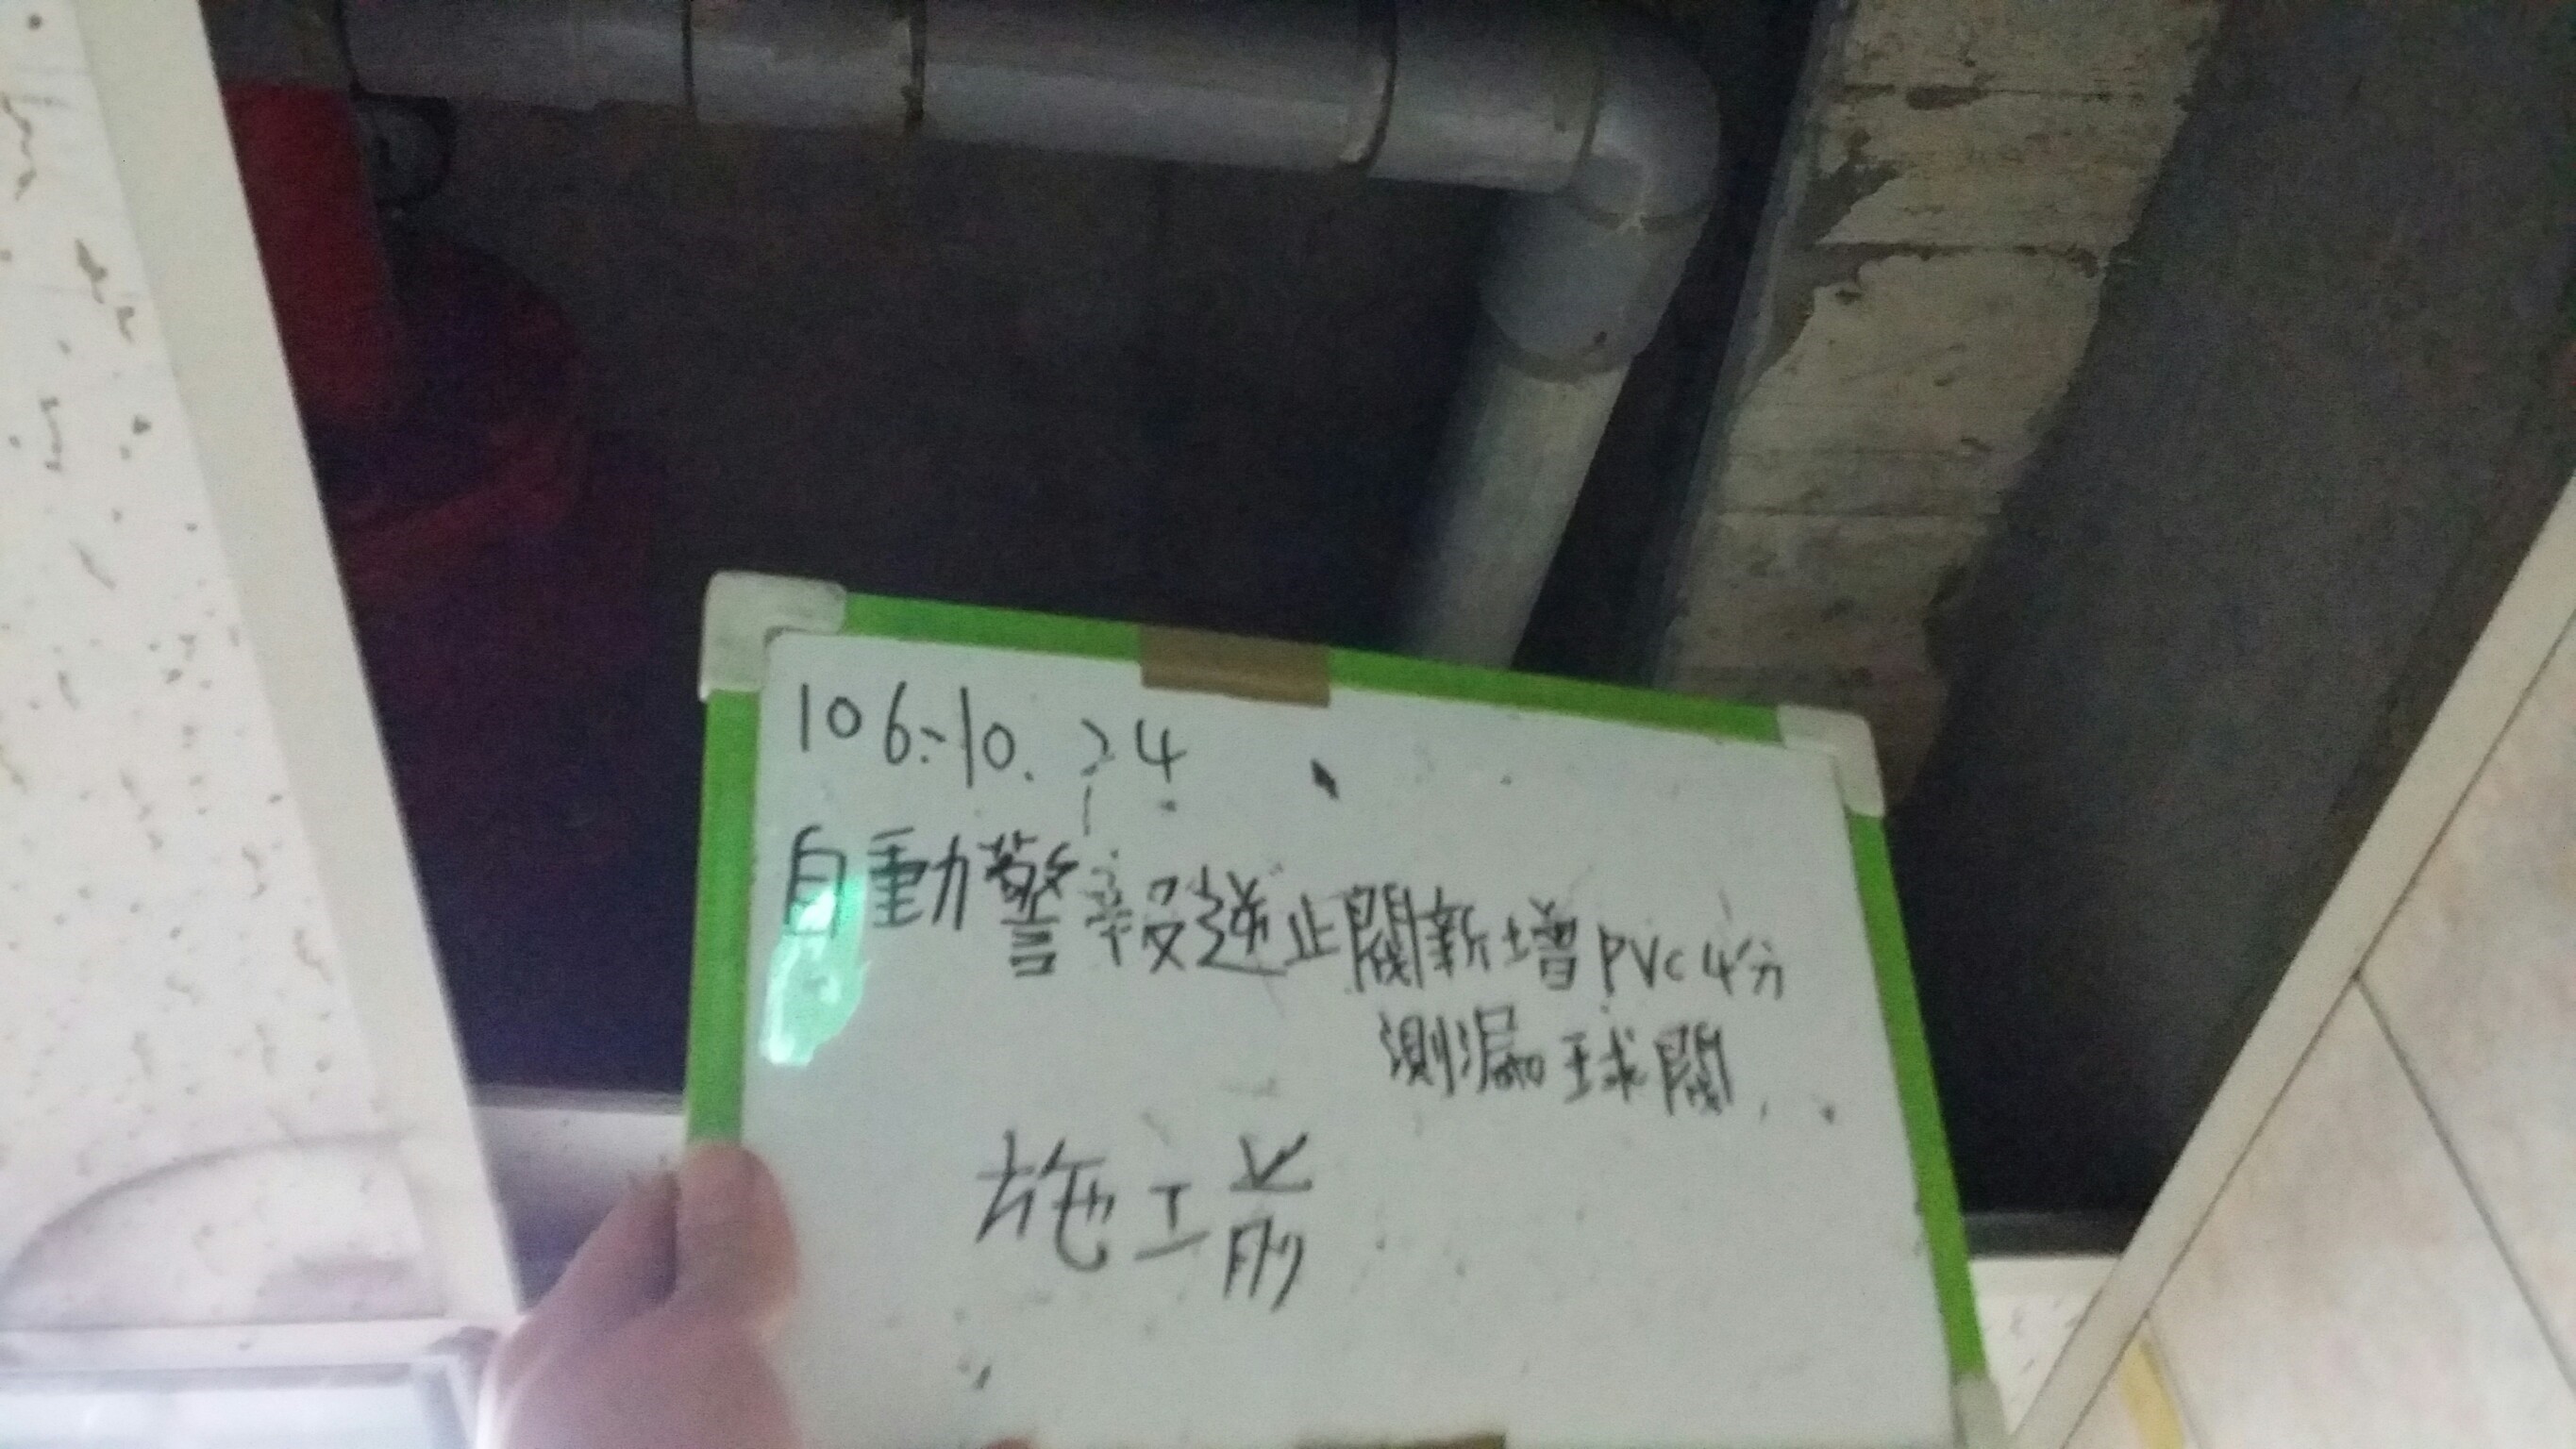 106.10.24
自動警報逆止閥新增PVC4分
測漏球閥
施工前